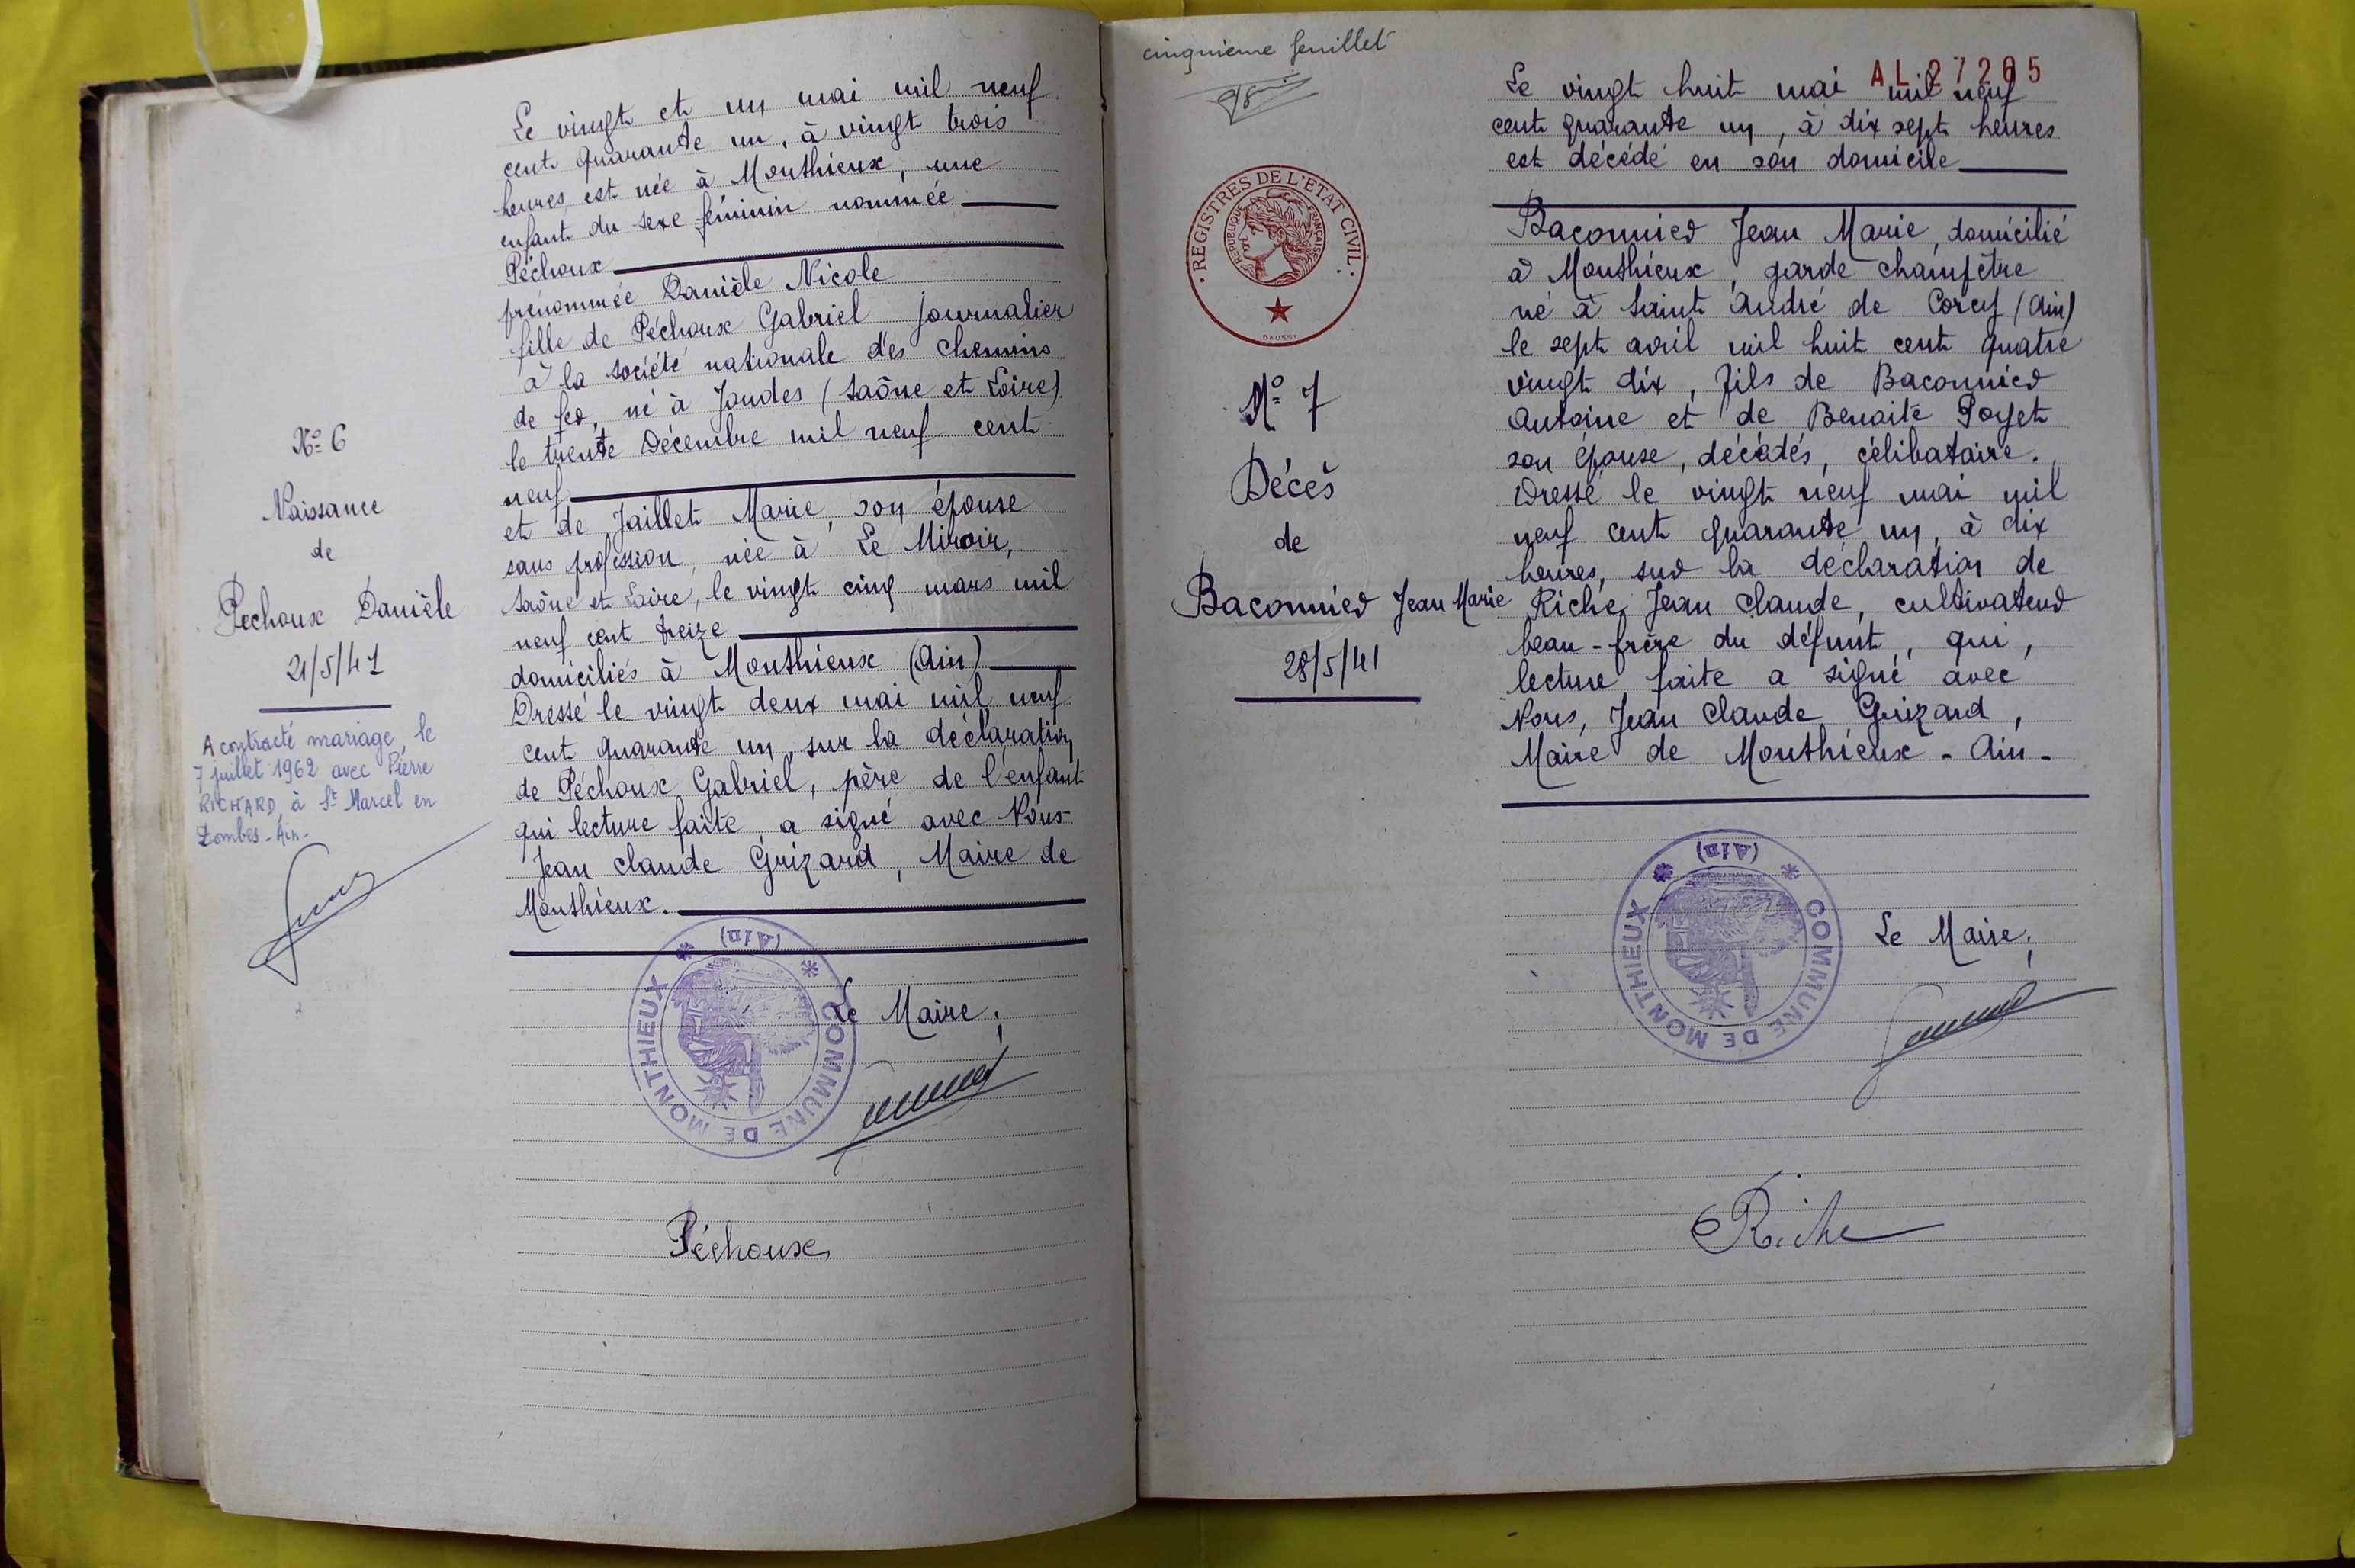 N° 6
Naissance
de
Pechoux Danièle
21/5/41
A contracté mariage, le
7 juillet 1962 avec Pierre
RICHARD, à St Marcel en
Dombes - Ain -
Le vingt et un mai mil neuf
cent quarante un, à vingt trois
heures est née à Monthieux, une
enfant du sexe féminin nommée
Péchoux
prénommée Danièle Nicole
fille de Péchoux Gabriel journalier
à la société nationale des chemins
de fer, né à Joudes (Saône et Loire)
le trente Décembre mil neuf cent
neuf
et de Jaillet Marie, son épouse
sans profession, née à Le Miroir,
Saône et Loire, le vingt cinq mars mil
neuf cent treize
domiciliés à Monthieux (Ain)
Dressé le vingt deux mai mil neuf
cent quarante un, sur la déclaration
de Péchoux Gabriel, père de l'enfant
qui lecture faite, a signé avec Nous
Jean Claude Grizard, Maire de
Monthieux.
(Ain)
COMMUNE DE MONTHIEUX
Le Maire,
Péchoux
cinquieme feuillet
REGISTRES DE L'ETAT CIVIL
REPUBLIQUE FRANÇAISE
DAUSSY
N° 7
Décès
de
Baconnier Jean Marie
28/5/41
AL 27205
Le vingt huit mai mil neuf
cent quarante un, à dix sept heures
est décédé en son domicile
Baconnier Jean Marie, domicilié
à Monthieux, garde champêtre
né à Saint André de Corcy (Ain)
le sept avril mil huit cent quatre
vingt dix, fils de Baconnier
Antoine et de Benoite Poyet
son épouse, décédés, célibataire.
Dressé le vingt neuf mai mil
neuf cent quarante un, à dix
heures, sur la déclaration de
Riche Jean Claude, cultivateur
beau-frère du défunt, qui,
lecture faite a signé avec
Nous, Jean Claude Grizard,
Maire de Monthieux - Ain -
(Ain)
COMMUNE DE MONTHIEUX
Le Maire,
Riche